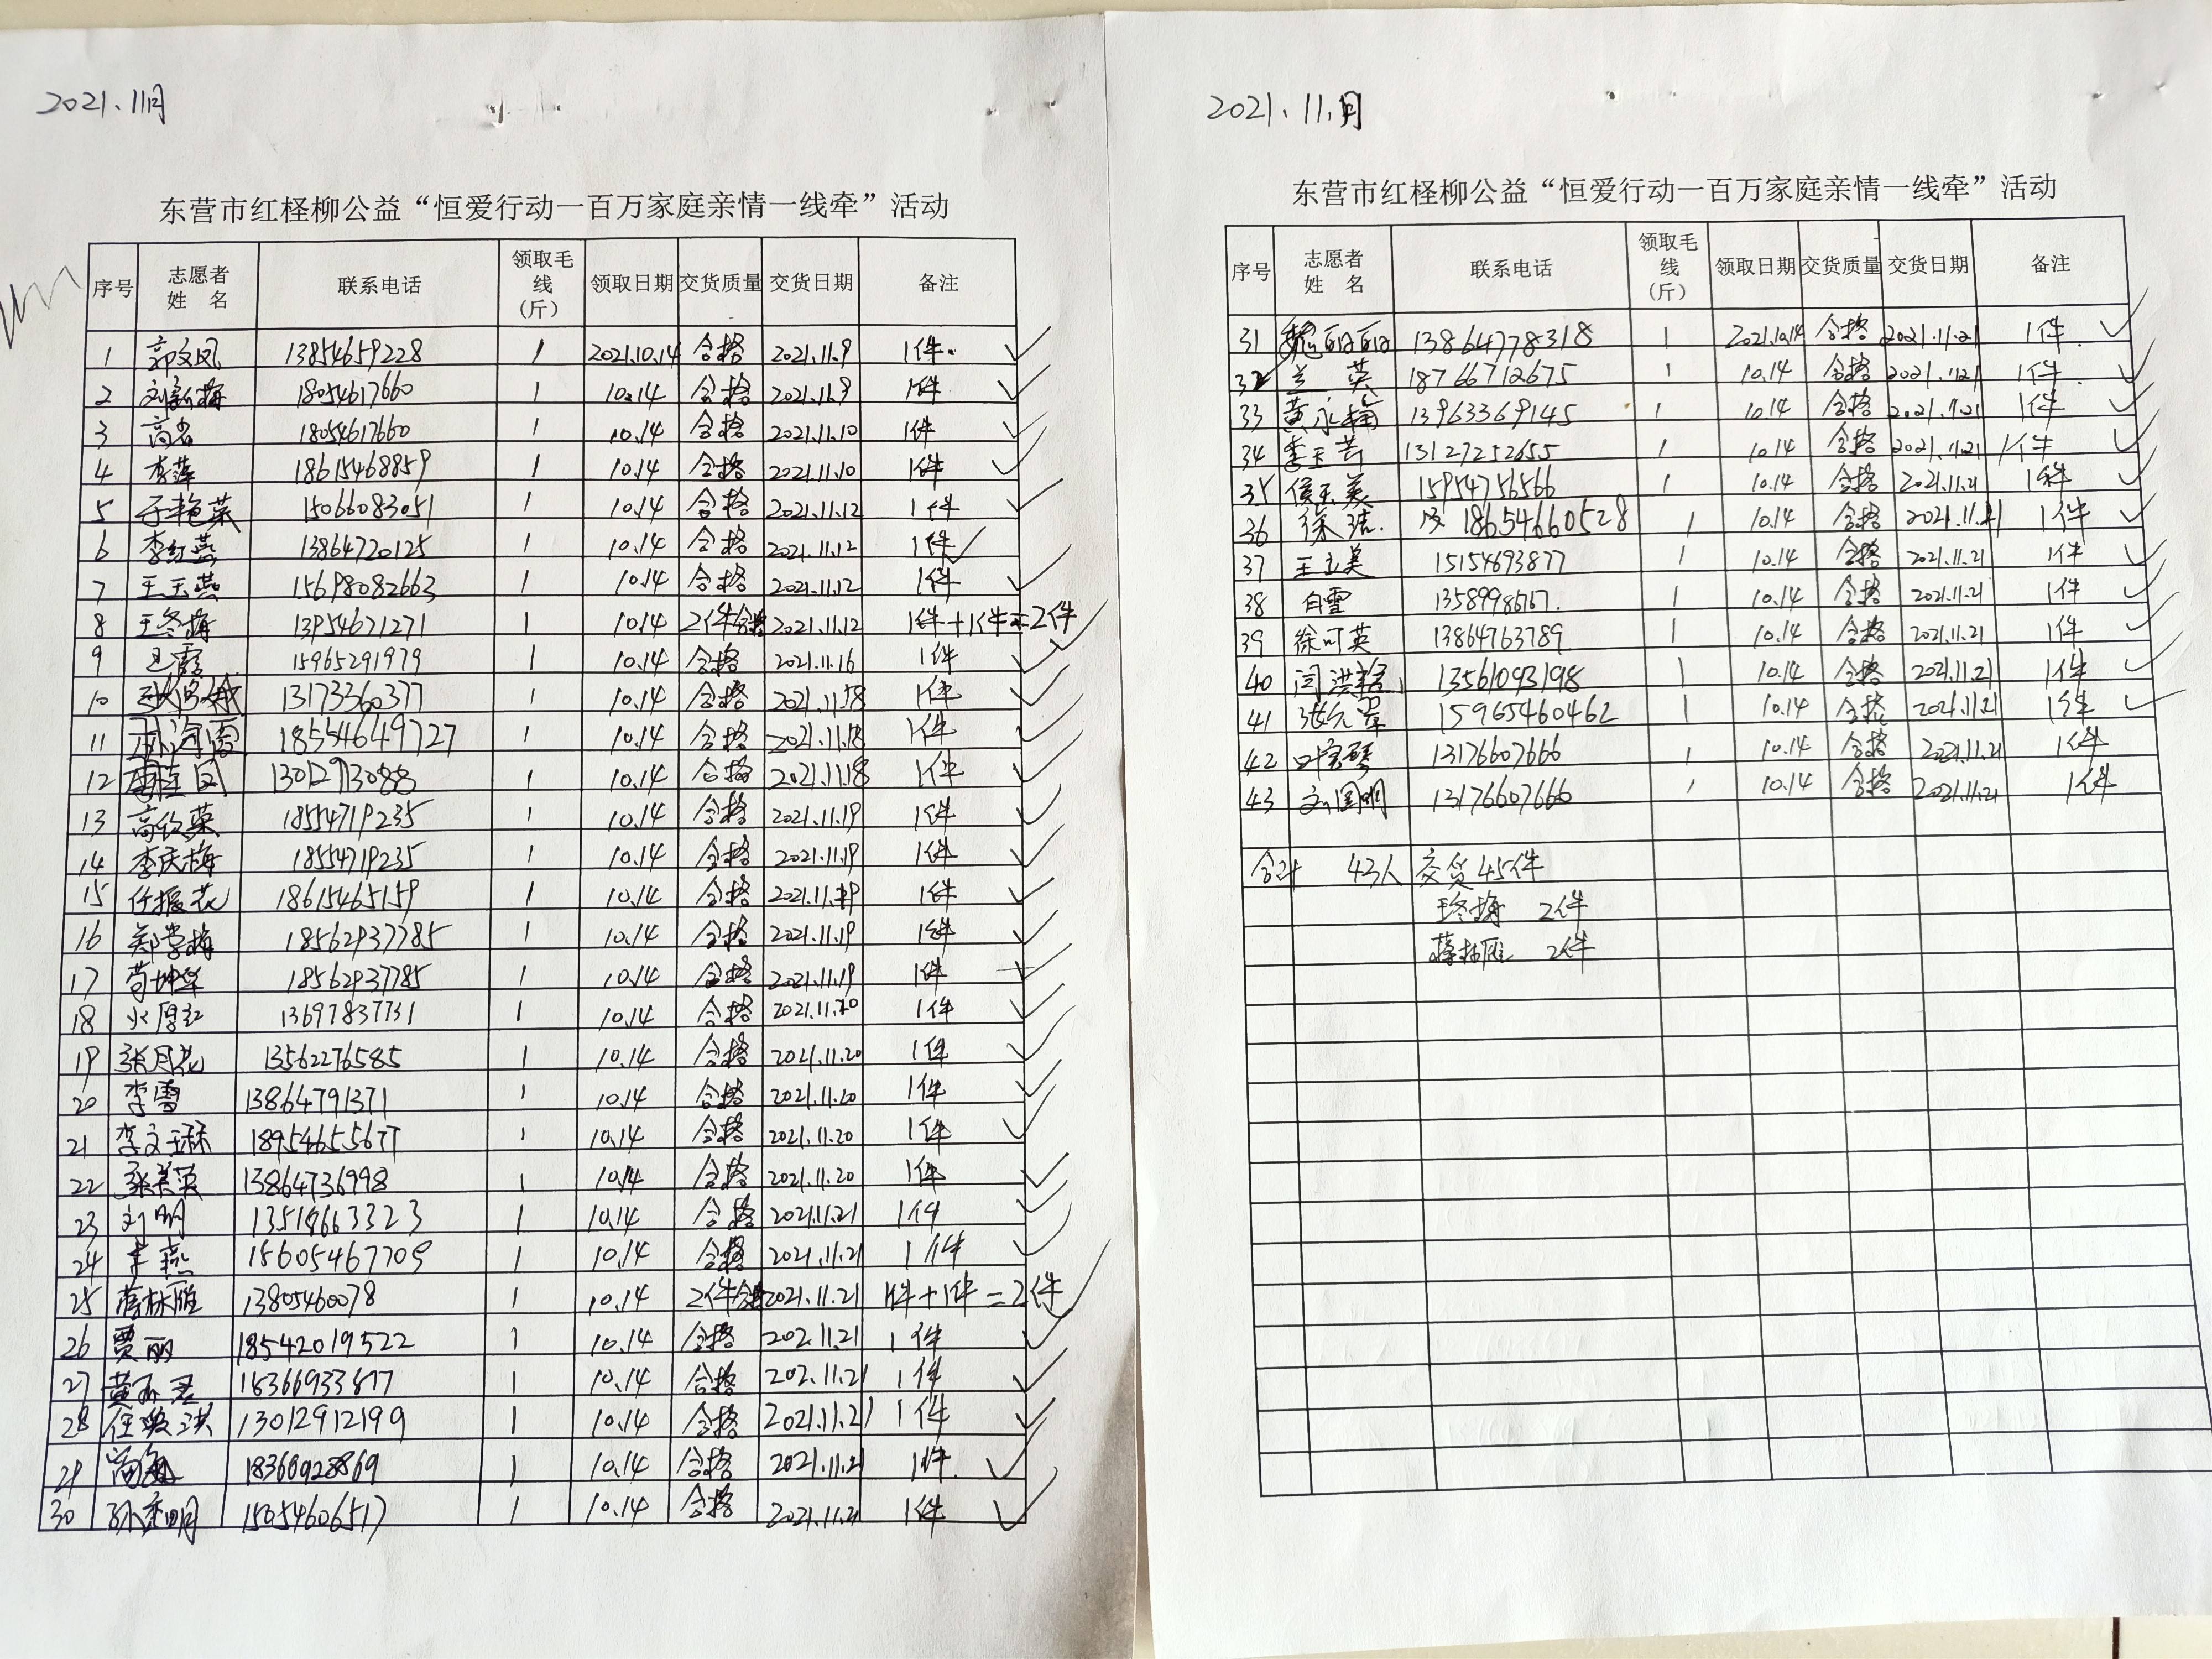 2021.11月
东营市红柽柳公益“恒爱行动一百万家庭亲情一线牵”活动
序号 志愿者姓 名 联系电话 领取毛线(斤) 领取日期 交货质量 交货日期 备注
1 郭文凤 13854659228 1 2021.10.14 合格 2021.11.9 1件.
2 刘新梅 18054617660 1 10.14 合格 2021.11.9 1件
3 高岩 18054617660 1 10.14 合格 2021.11.10 1件
4 李萍 18615468859 1 10.14 合格 2021.11.10 1件
5 于艳荣 15066083051 1 10.14 合格 2021.11.12 1件
6 李红燕 13864720125 1 10.14 合格 2021.11.12 1件
7 王玉燕 15698082663 1 10.14 合格 2021.11.12 1件
8 王冬梅 13954671271 1 10.14 2件合格 2021.11.12 1件+1件=2件
9 15965291979 1 10.14 合格 2021.11.16 1件
10 13173360377 1 10.14 合格 2021.11.18 1件
11 18554649727 1 10.14 合格 2021.11.18 1件
12 13012973088 1 10.14 合格 2021.11.18 1件
13 高欣荣 18554719235 1 10.14 合格 2021.11.19 1件
14 李庆梅 18554719235 1 10.14 合格 2021.11.19 1件
15 任振花 18615465159 1 10.14 合格 2021.11.19 1件
16 郑学梅 18562937785 1 10.14 合格 2021.11.19 1件
17 苟坤华 18562937785 1 10.14 合格 2021.11.19 1件
18 13697837731 1 10.14 合格 2021.11.20 1件
19 张月花 13562276585 1 10.14 合格 2021.11.20 1件
20 李雪 13864791371 1 10.14 合格 2021.11.20 1件
21 李文 18954655677 1 10.14 合格 2021.11.20 1件
22 张美英 13864736998 1 10.14 合格 2021.11.20 1件
23 刘明 13518663323 1 10.14 合格 2021.11.21 1件
24 15605467709 1 10.14 合格 2021.11.21 1件
25 蒋林雁 13805460078 1 10.14 2件合格 2021.11.21 1件+1件=2件
26 贾丽 18542019522 1 10.14 合格 202.11.21 1件
27 18366933877 1 10.14 合格 202.11.21 1件
28 13012912199 1 10.14 合格 2021.11.21 1件
29 18366928869 1 10.14 合格 2021.11.21 1件.
30 孙秀明 15054606517 1 10.14 合格 2021.11.21 1件
2021.11.月
东营市红柽柳公益“恒爱行动一百万家庭亲情一线牵”活动
序号 志愿者姓 名 联系电话 领取毛线(斤) 领取日期 交货质量 交货日期 备注
31 魏丽丽 13864778318 1 2021.10.14 合格 2021.11.21 1件
32 兰英 18766712675 1 10.14 合格 2021.11.21 1件
33 黄永梅 13963369145 1 10.14 合格 2021.11.21 1件
34 李玉芳 13127252655 1 10.14 合格 2021.11.21 1件
35 侯玉美 15954756566 1 10.14 合格 2021.11.21 1件
36 徐洁. 18654660528 1 10.14 合格 2021.11.21 1件
37 王立美 15154693877 1 10.14 合格 2021.11.21 1件
38 白雪 1 10.14 合格 2021.11.21 1件
39 徐可英 13864763789 1 10.14 合格 2021.11.21 1件
40 13561093198 1 10.14 合格 2021.11.21 1件
41 15965460462 1 10.14 合格 2021.11.21 1件
42 13176607666 1 10.14 合格 2021.11.21 1件
43 刘国明 13176607666 1 10.14 合格 2021.11.21 1件
合计 43人 交货45件
王冬梅 2件
蒋林雁 2件